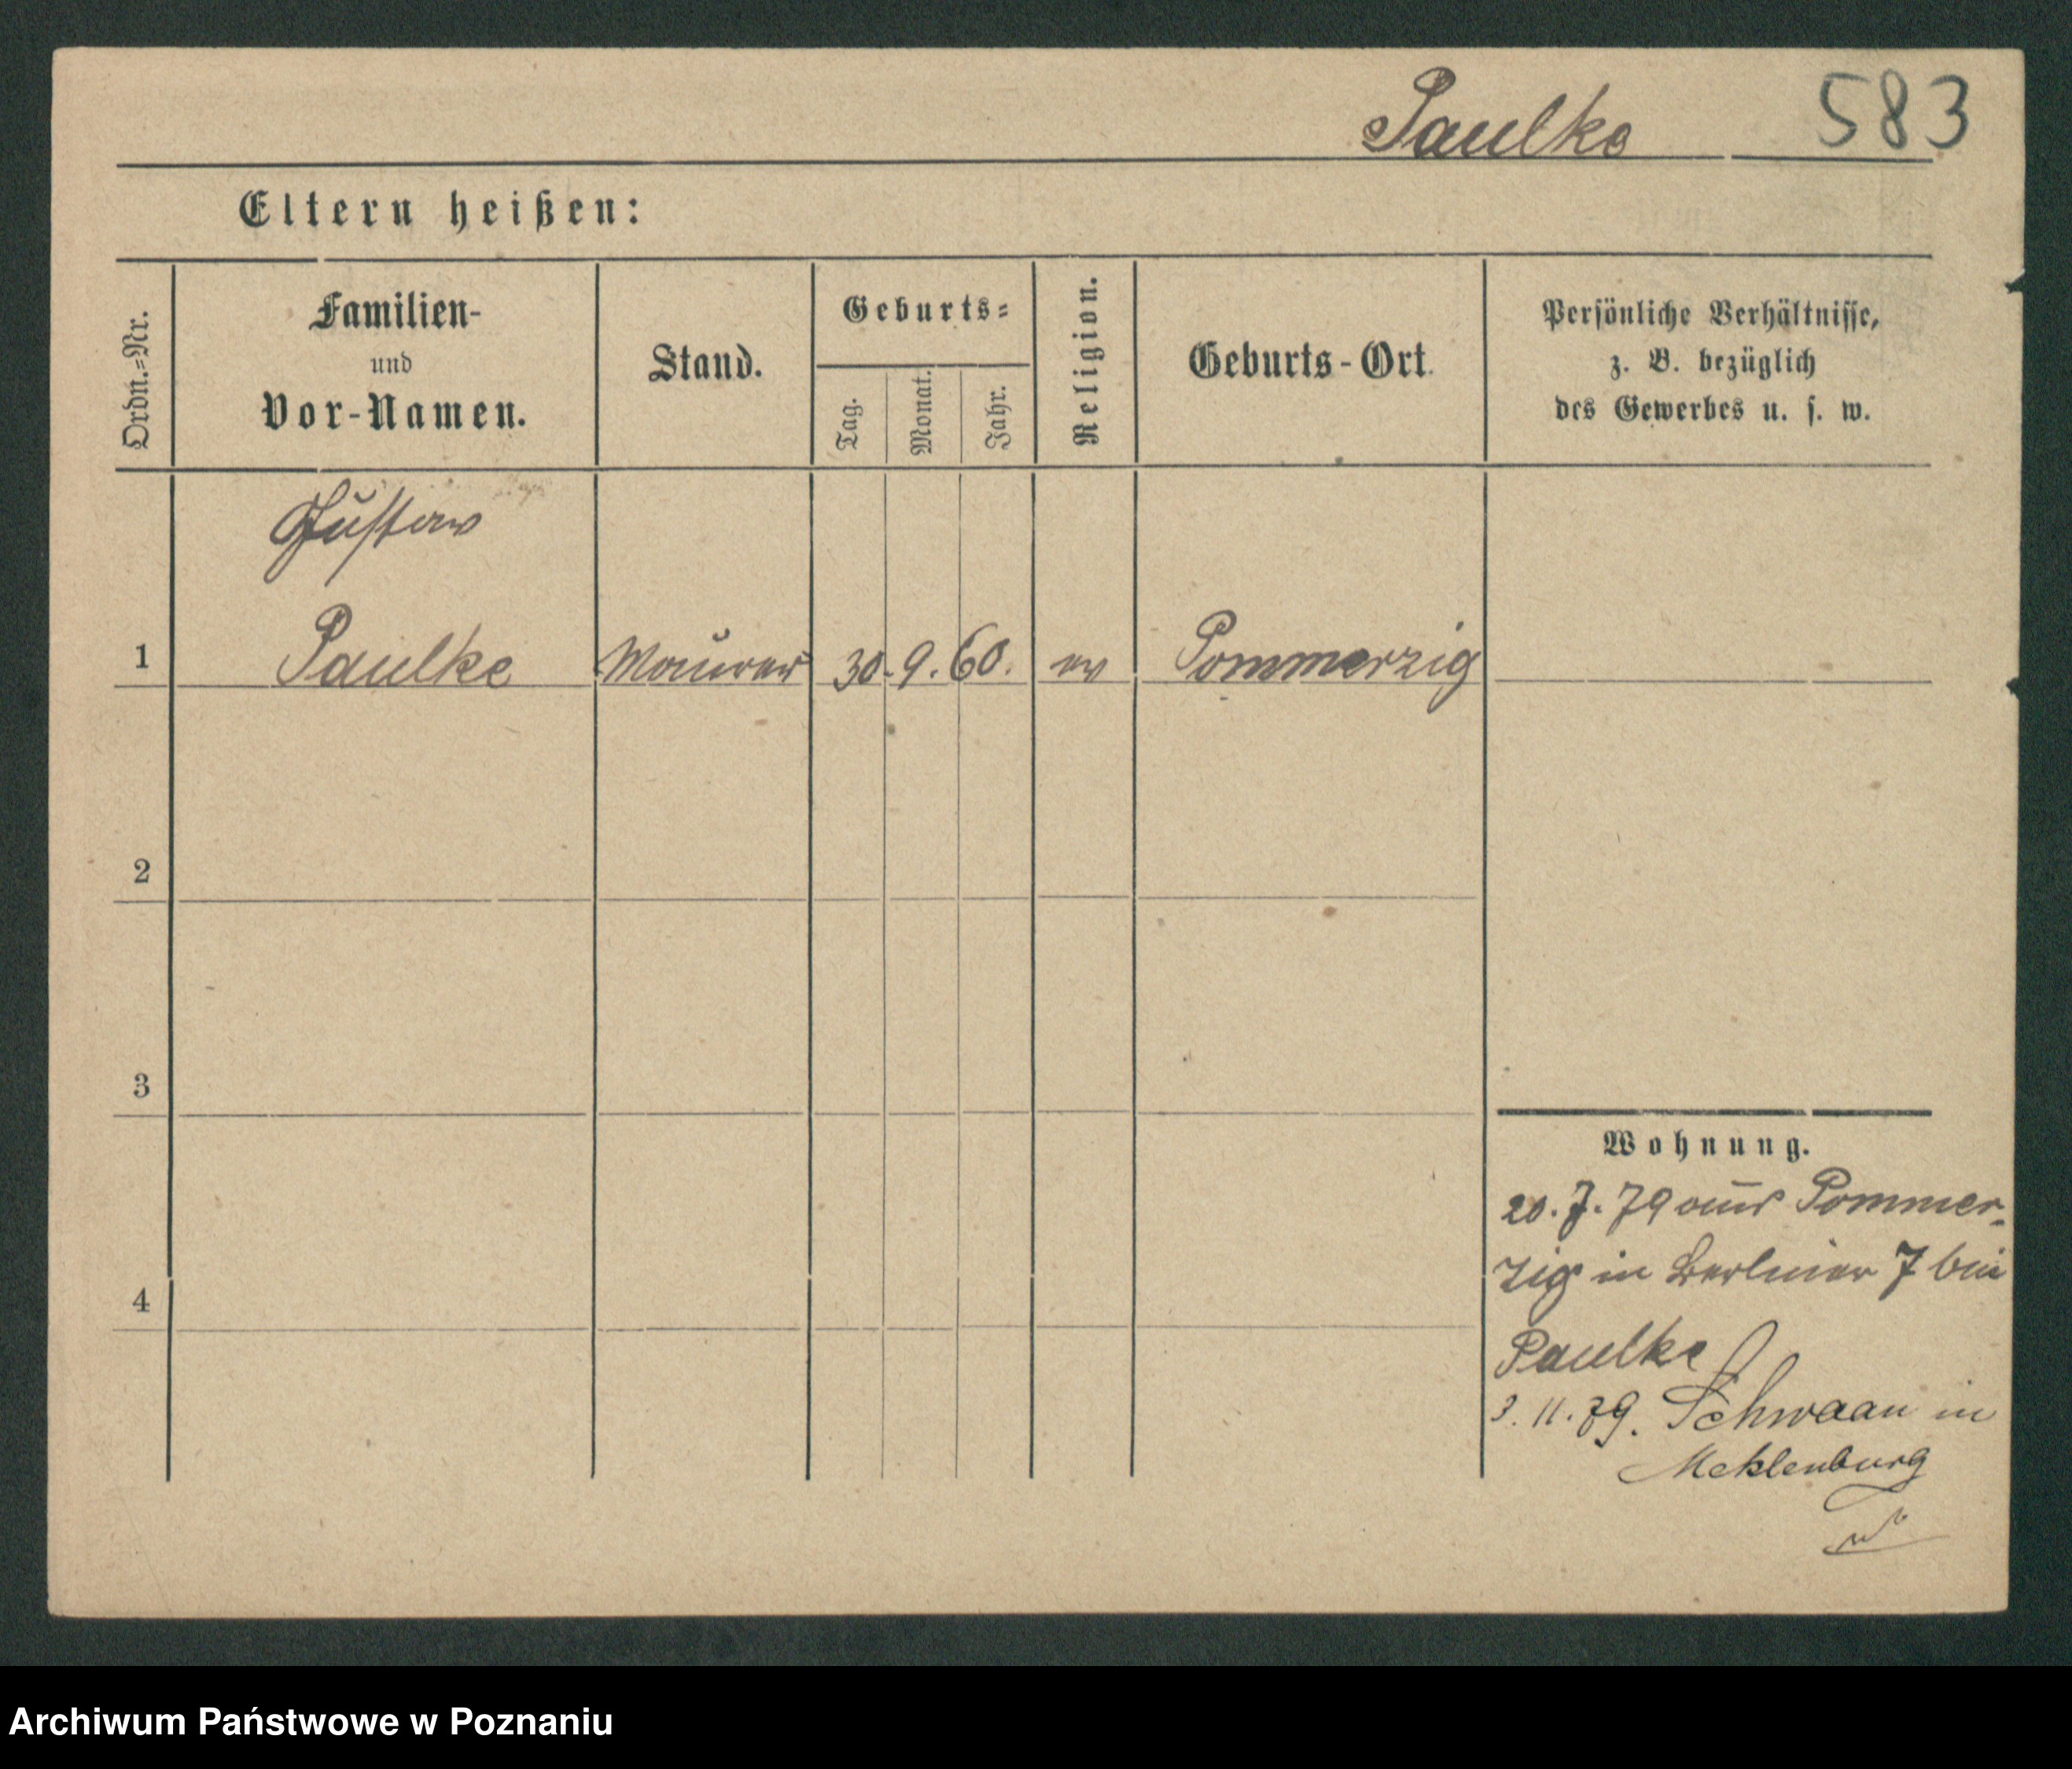 Paulke 583
Eltern heißen:
Ordn.=Nr.
Familien-
und
Vor-Namen.
Stand.
Geburts=
Tag.
Monat.
Jahr.
Religion.
Geburts-Ort.
Persönliche Verhältnisse,
z. B. bezüglich
des Gewerbes u. s. w.
Gustav
1 Paulke Maurer 30. 9. 60. ev Pommerzig
2
3
Wohnung.
20. 7. 79 aus Pommer-
zig in Berliner 7 bei
4
Paulke
3. 11. 79. Schwaan in
Meklenburg
Archiwum Państwowe w Poznaniu